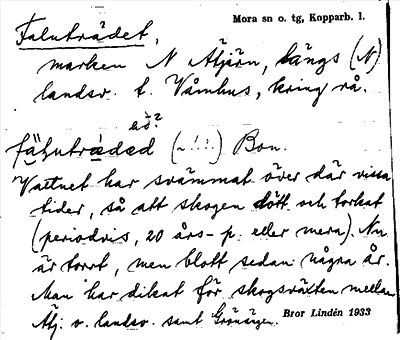 Mora sn o. tg, Kopparb. l.
Faluträdet,
marken N Äjärn, längs (N)
landsv. t. Våmhus, kring rå.
fäḷuträded (~!!) Bon.
Vattnet har svämmat över där vissa
tider, så att skogen dött och torkat
(periodvis, 20 års-p. eller mera). Nu
är torrt, men blott sedan några år.
Man har dikat för skogsväxten mellan
Älj. o. landsv. samt Grönängen.
Bror Lindén 1933